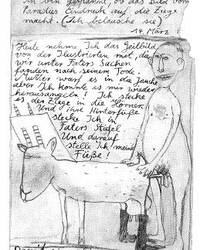 gespannt, ob das Bild vom
Paradies Eindruck auf die Ziege
macht. (Ich belausche sie)
14 März
Heute nehme Ich das Teilbild
von der Illustrierten mit, das
wir unter Vaters Sachen
fanden nach seinem Tode.
Mutter warf es in die
aber Ich konnte es mir wieder
herausangeln! Ich stecke
es der Ziege in die Hörner.
Und ihre Hinterfüße
stecke Ich in
Vaters Stiefel.
Und darauf
stelle Ich meine
Füße!